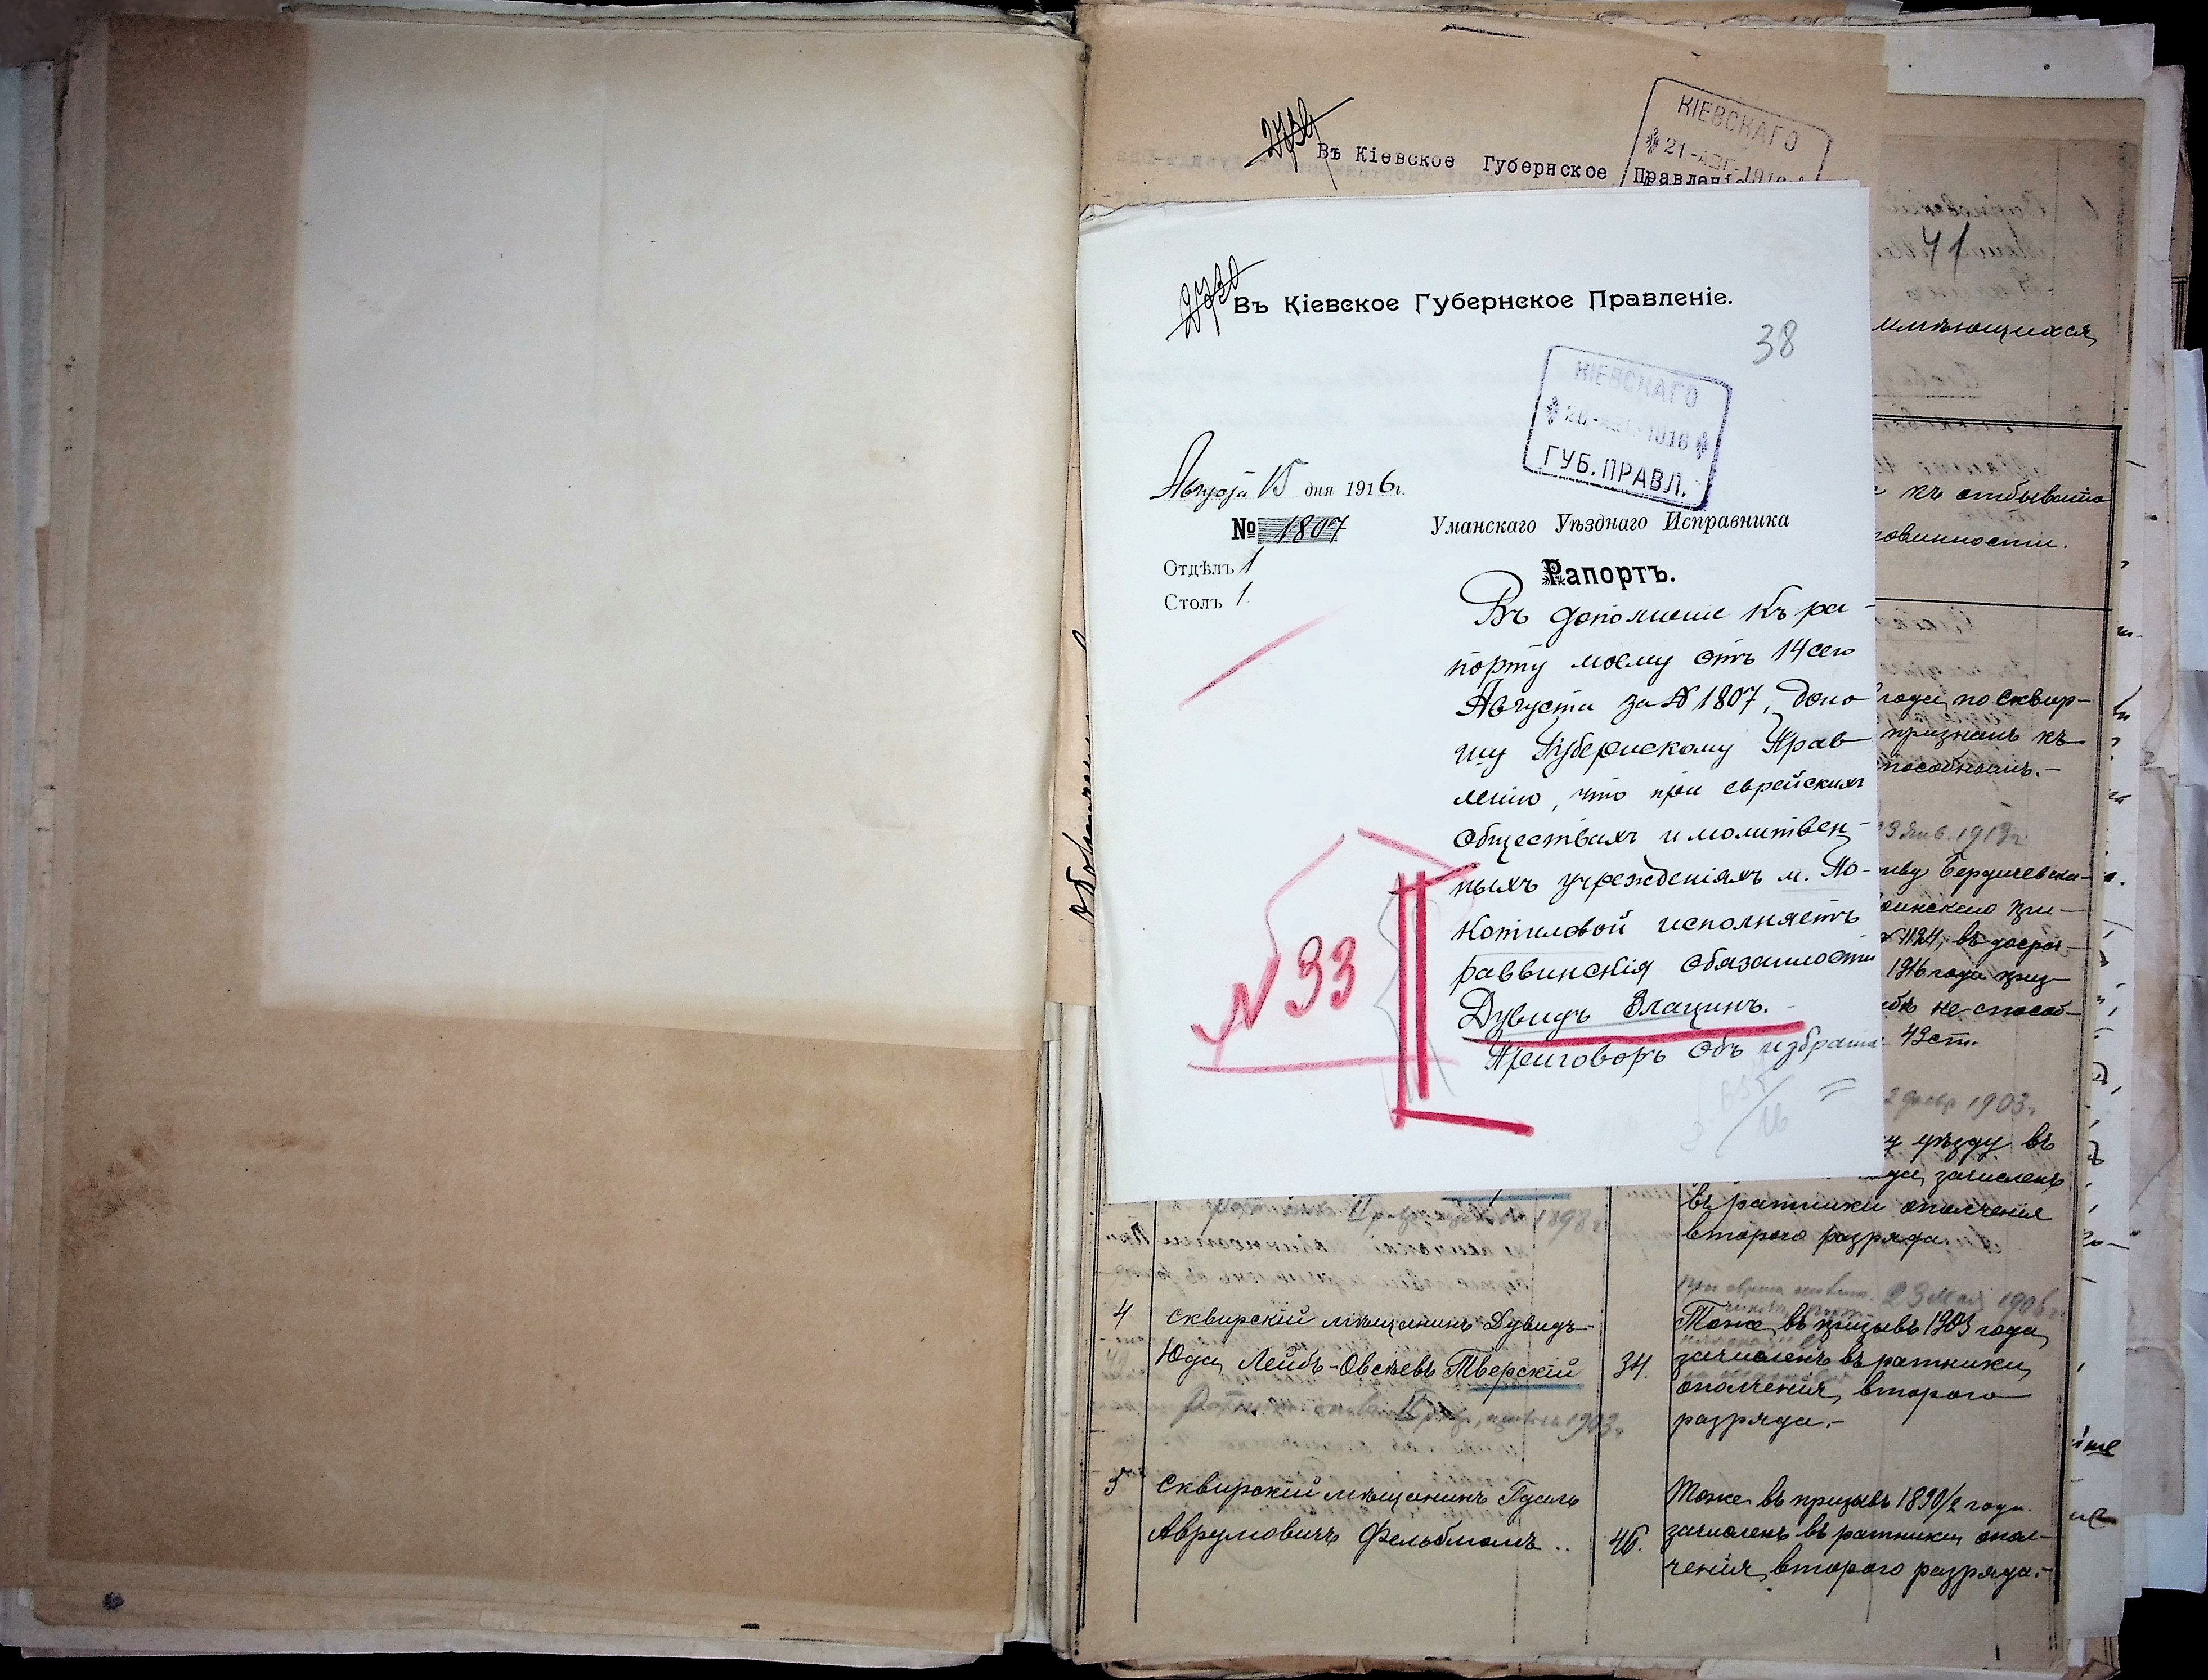 2734
Въ Кіевское Губернское Правленіе
КІЕВСКАГО
21-АВГ-1916
2730
Въ Кіевское Губернское Правленіе.
38
КІЕВСКАГО
20-АВГ-1916
ГУБ. ПРАВЛ.
Августа 15 дня 1916 г.
№ 1807
Отдѣлъ 1
Столъ 1.
Уманскаго Уѣзднаго Исправника
Рапортъ.
Въ дополненіе къ ра-
порту моему отъ 14 сего
Августа за № 1807, доно
шу Губернскому Прав
ленію, что при еврейскихъ
обществахъ и молитвен-
ныхъ учрежденіяхъ м. По-
котиловой исполняетъ
раввинскія обязанности
Дувидъ Злацинъ.-
Приговоръ объ избраніи
№ 33
41
имѣющихся
къ отбыванію
повинности.
года, по Сквир-
признанъ къ
способнымъ.-
1913 г.
Бердичевска-
воинскаго при-
1124, въ досроч-
1916 года приз-
не способ-
43 ст.
1903 г.
уѣзду въ
зачисленъ
въ ратники ополченія
второго разряда.
1898 г.
4 Сквирскій мѣщанинъ Дувидъ-
Юда Лейбъ-Овсѣевъ Тверскій
34.
23 мая 1906 г.
Тоже, въ призывъ 1903 года,
зачисленъ въ ратники
ополченія, второго
разряда.-
1903 г.
5 Сквирскій мѣщанинъ Гдаль
Аврумовичъ Фельдманъ ..
46.
Тоже въ призывъ 1890/2 года.
зачисленъ въ ратники опол-
ченія, второго разряда.-